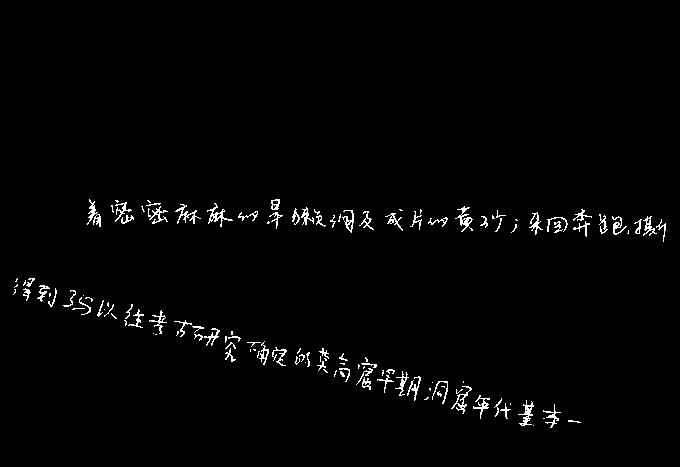 着密密麻麻的旱獭洞及成片的黄沙；来回奔跑、撕
得到了与以往考古研究确定的莫高窟早期洞窟年代基本一